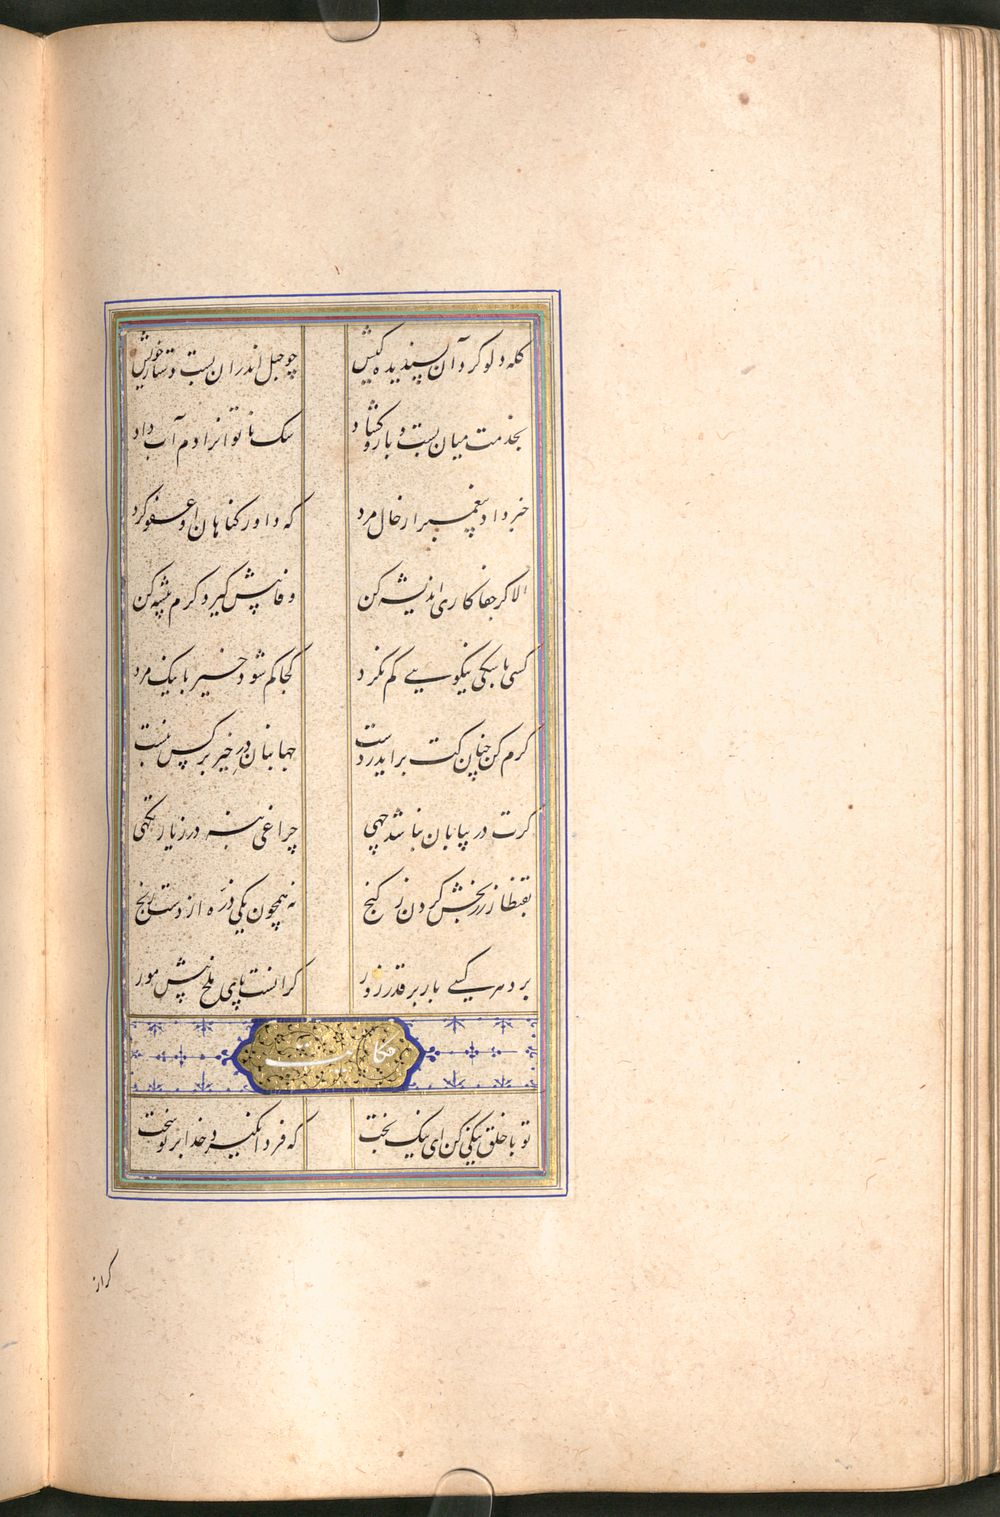 کله دلو کرد آن پسندیده کیش چو حبل اندران بست دستار خویش
بخدمت میان بست و بازو کشاد سک ناتوانرا دم آب داد
خبر داد پیغمبر از حال مرد که داور کناهان او عفو کرد
الا کر جفاکاری اندیشه کن وفا پیش کیر و کرم پیشه کن
کسی با سکی نیکویی کم نکرد کجا کم شود خیر با نیک مرد
کرم کن چنان کت براید ز دست جهانبان در خیر بر کس نبست
کرت در بیابان نباشد چهی چراغی بنه در زیارتکهی
بقنطار زر بخش کردن ز کنج نه همچون یکی ذره از دست رنج
برد هر کسی بار بر قدر زور کرانست پای ملخ پیش مور
حکایت
تو با خلق نیکی کن ای نیک بخت که فردا نکیرد خدا بر تو سخت
کر از